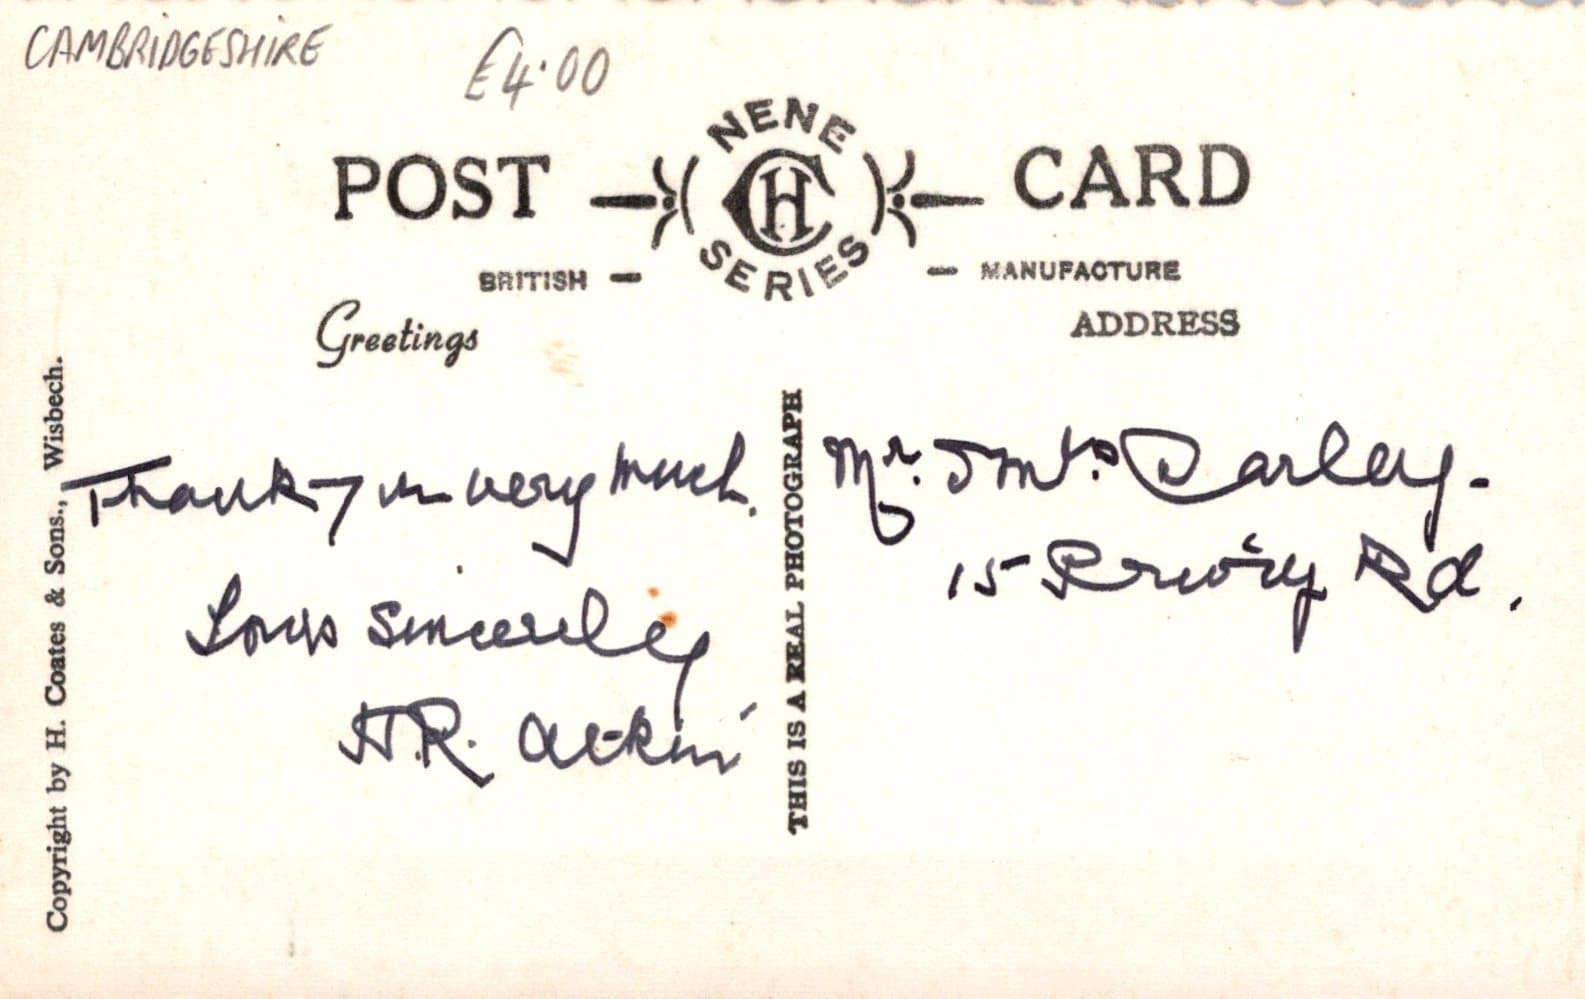 CAMBRIDGESHIRE
£4.00
POST CARD
NENE
CH
SERIES
BRITISH — — MANUFACTURE
Greetings
ADDRESS
Copyright by H. Coates & Sons., Wisbech.
Thank you very much.
Yours Sincerely
H.R. Atkin
THIS IS A REAL PHOTOGRAPH
Mr. & Mrs. Darley.
15 Priory Rd.